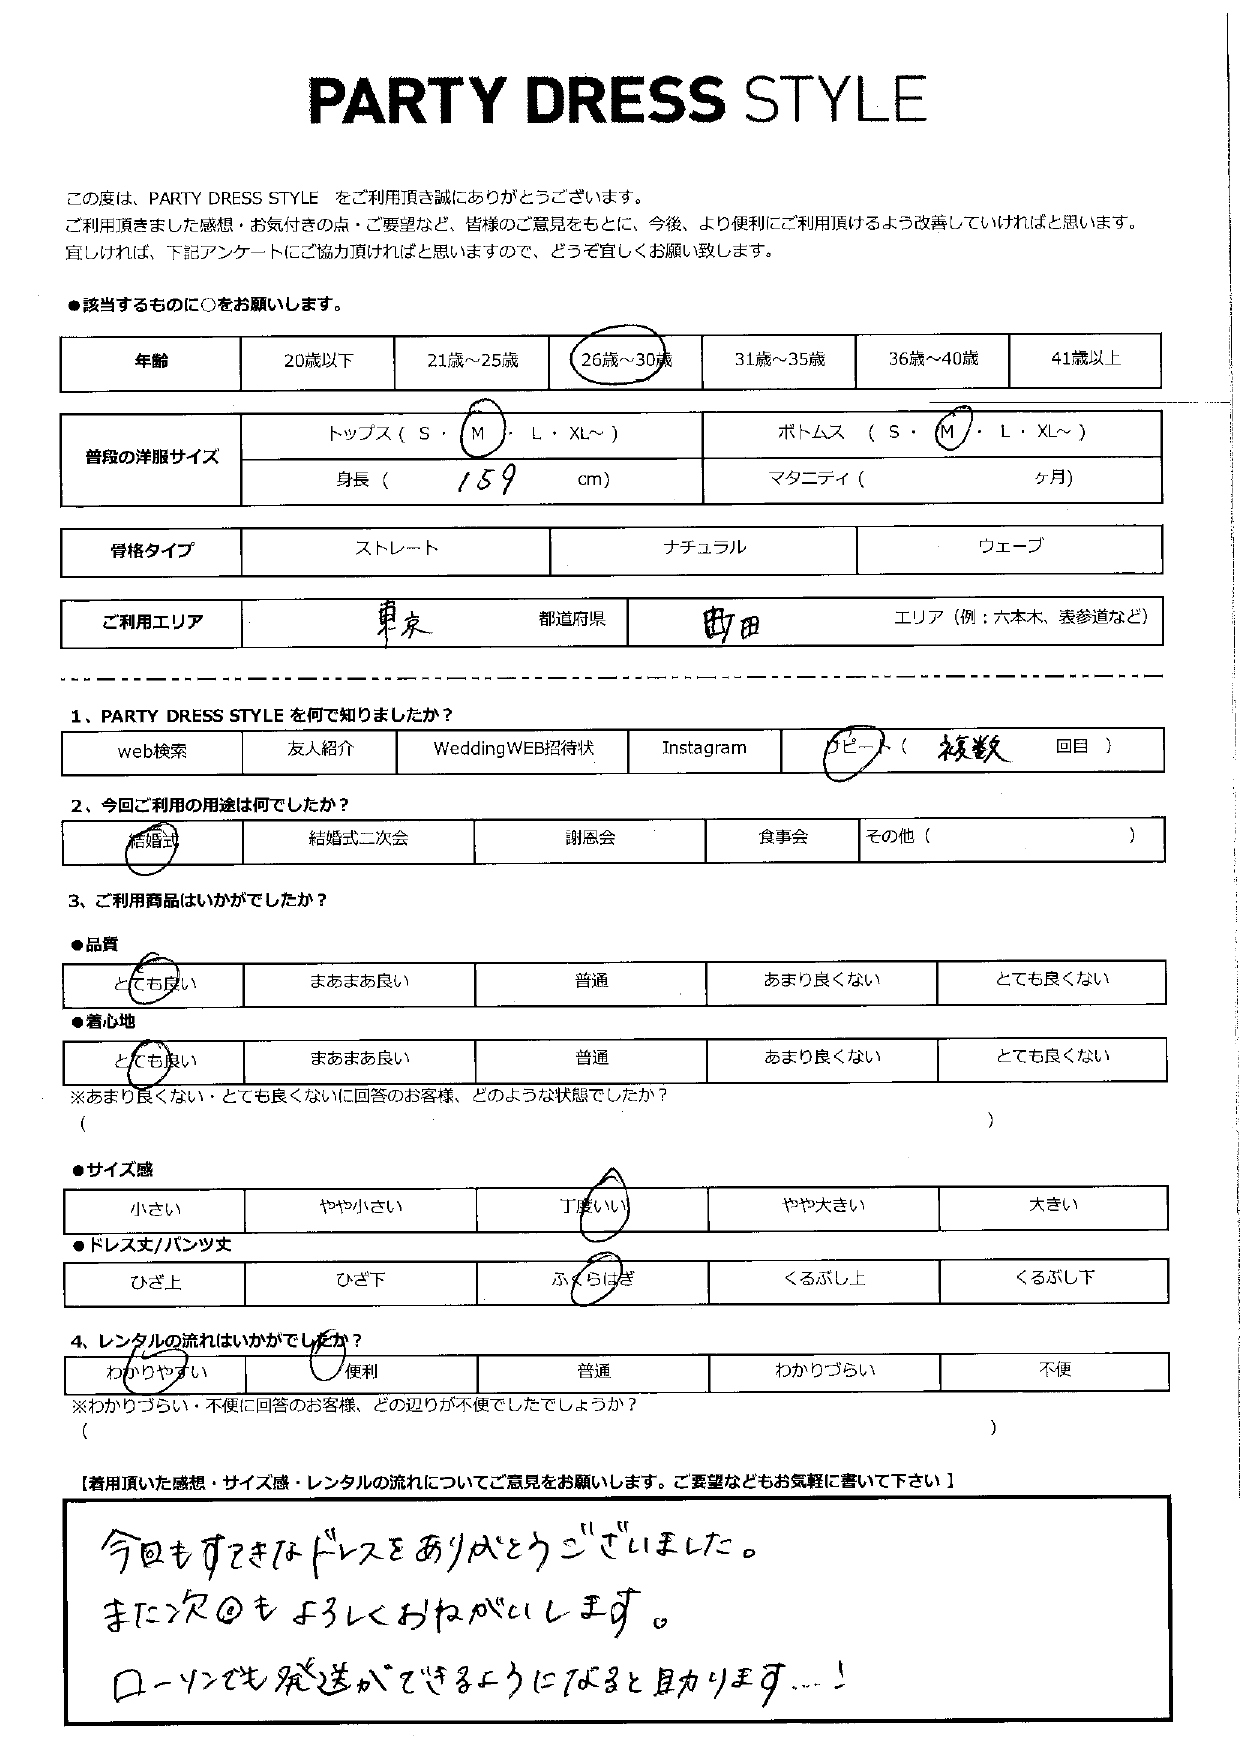 PARTY DRESS STYLE
この度は、PARTY DRESS STYLE をご利用頂き誠にありがとうございます。
ご利用頂きました感想・お気付きの点・ご要望など、皆様のご意見をもとに、今後、より便利にご利用頂けるよう改善していければと思います。
宜しければ、下記アンケートにご協力頂ければと思いますので、どうぞ宜しくお願い致します。
●該当するものに○をお願いします。
年齢 20歳以下 21歳～25歳 26歳～30歳 31歳～35歳 36歳～40歳 41歳以上
普段の洋服サイズ トップス ( S ・ M ・ L ・ XL～ ) ボトムス ( S ・ M ・ L ・ XL～ )
身長 ( 159 cm) マタニティ ( ヶ月)
骨格タイプ ストレート ナチュラル ウェーブ
ご利用エリア 東京 都道府県 町田 エリア（例：六本木、表参道など）
1、PARTY DRESS STYLE を何で知りましたか？
web検索 友人紹介 WeddingWEB招待状 Instagram リピート ( 複数 回目 )
2、今回ご利用の用途は何でしたか？
結婚式 結婚式二次会 謝恩会 食事会 その他 ( )
3、ご利用商品はいかがでしたか？
●品質
とても良い まあまあ良い 普通 あまり良くない とても良くない
●着心地
とても良い まあまあ良い 普通 あまり良くない とても良くない
※あまり良くない・とても良くないに回答のお客様、どのような状態でしたか？
( )
●サイズ感
小さい やや小さい 丁度いい やや大きい 大きい
●ドレス丈/パンツ丈
ひざ上 ひざ下 ふくらはぎ くるぶし上 くるぶし下
4、レンタルの流れはいかがでしたか？
わかりやすい 便利 普通 わかりづらい 不便
※わかりづらい・不便に回答のお客様、どの辺りが不便でしたでしょうか？
( )
【着用頂いた感想・サイズ感・レンタルの流れについてご意見をお願いします。ご要望などもお気軽に書いて下さい】
今回もすてきなドレスをありがとうございました。
また次回もよろしくおねがいします。
ローソンでも発送ができるようになると助かります…！